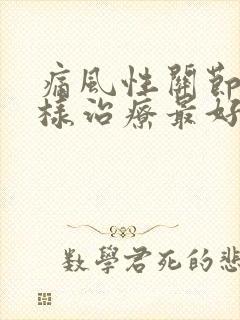 痛風性關節
樣治療最好
數學君死的悲